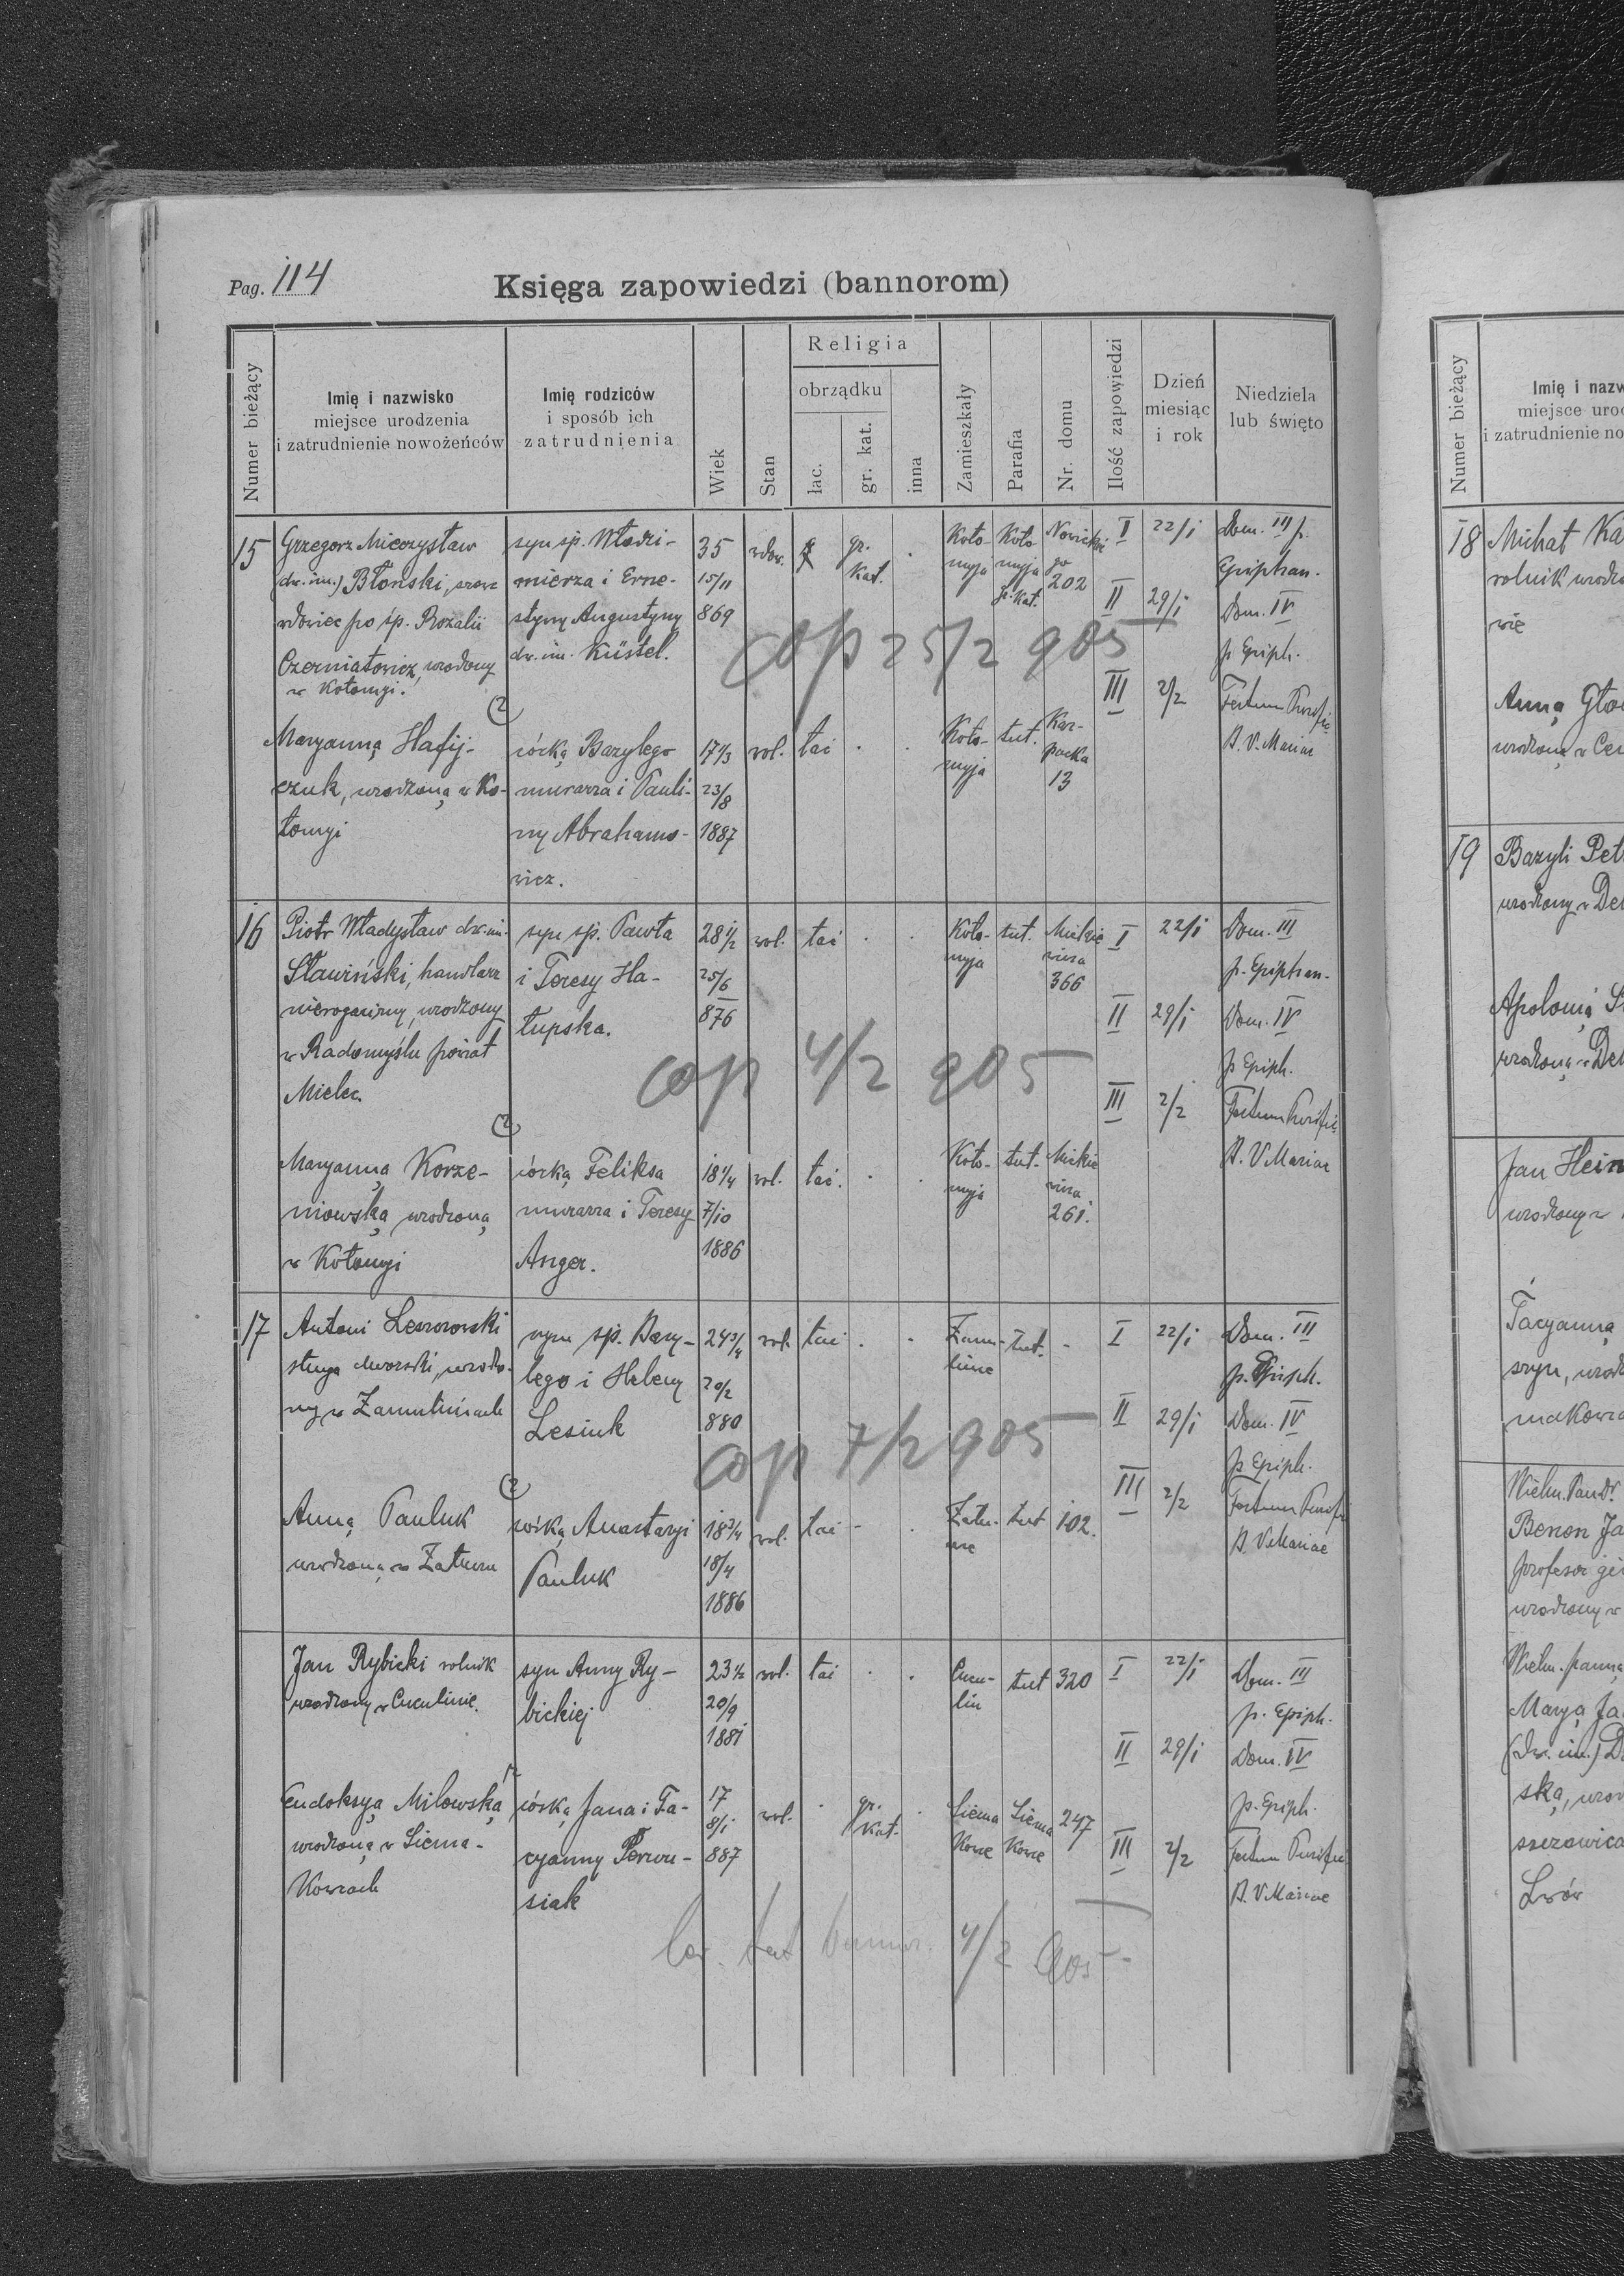 Pag. 114
Księga zapowiedzi (bannorom)
Numer bieżący
Imię i nazwisko
miejsce urodzenia
i zatrudnienie nowożeńców
Imię rodziców
i sposób ich
zatrudnienia
Wiek
Stan
Religia
obrządku
łac.
gr. kat.
inna
Zamieszkały
Parafia
Nr. domu
Ilość zapowiedzi
Dzień
miesiąc
i rok
Niedziela
lub święto
15
Grzegorz Mieczysław
(dw. im.) Błonski, szewc
wdowiec po śp. Rozalii
Czerniatowicz, urodzony
w Kołomyi.
syn śp. Włodzi-
mierza i Erne-
styny Augustyny
dw. im. Küstel.
35
15/11
869
wdow.
gr.
kat.
Koło-
myja
Koło-
myja
gr. kat.
Nowickie
go
202
I 22/1 Dom. III p.
Epiphan.
II 29/1 Dom. IV
p Epiph.
III 2/2 Festum Purific
B. V. Mariae
cop 25/2 905
(2
Maryanną Hafij-
czuk, urodzoną w Ko-
łomyi
córką Bazylego
murarza i Pauli-
ny Abrahamo-
wicz.
17 1/3
23/8
1887
wol.
łać
Koło-
myja
tut.
Kar-
packa
13
16
Piotr Władysław dw. im.
Sławiński, handlarz
nierogacizny, urodzony
w Radomyślu powiat
Mielec
syn śp. Pawła
i Teresy Ha-
łupska.
28 1/2
25/6
876
wol.
łać
Koło-
myja
tut.
Mickie
wicza
366
I 22/1 Dom. III
p. Epiphan.
II 29/1 Dom. IV
p Epiph.
III 2/2 Festum Purific
B. V Mariae
cop 4/2 905
(2
Maryanną Korze-
niowską urodzoną
w Kołomyi
córką Feliksa
murarza i Teresy
Anger.
18 1/4
7/10
1886
wol.
łać.
Koło-
myja
tut.
Mickie
wicza
261.
17
Antoni
sługa dworski, urodzo-
ny w Zamulińcach
syn śp. Bazy-
lego i Heleny
Lesiuk
24 3/4
20/2
880
wol.
łać
Zamu-
lińce
tut.
-
I 22/1 Dom. III
p. Epiph.
II 29/1 Dom. IV
p Epiph.
III 2/2 Festum Purific
B. V Mariae
cop 7/2 905
(2
Anną Pauluk
urodzoną w
córką Anastazyi
Pauluk
18 3/4
18/4
1886
wol.
łać
tut
102.
Jan Rybicki rolnik
urodzony w Cuculinie.
syn Anny Ry-
bickiej
23 1/2
20/9
1881
wol.
łać
Cucu-
lin
tut
320
I 22/1 Dom. III
p. Epiph.
II 29/1 Dom. IV
p. Epiph.
III 2/2 Festum Purific
B. V Mariae
Eudoksyą Milowską
urodzoną w Siema-
kowcach
córką Jana i Ta-
cyanny Perwu-
siak
17
8/1
887
wol.
gr.
kat.
Siema
kowce
Siema
kowce
247
4/2 905
Numer bieżący
Imię i nazw
miejsce uro
i zatrudnienie no
18
Michał Ka
rolnik urodzo
wie
Anną Gło
urodzoną w Cu
19
Bazyli Pet
urodzony w Del
Apolonią S
urodzoną w Del
Jan Hein
urodzony w
Tacyanną
szyn, urodz
makowc
Wielm. Pan Dr.
Benon Ja
profesor gi
urodzony w
Wielm. panną
Maryą Ja
(dw. im.) D
ską, urod
Lwów